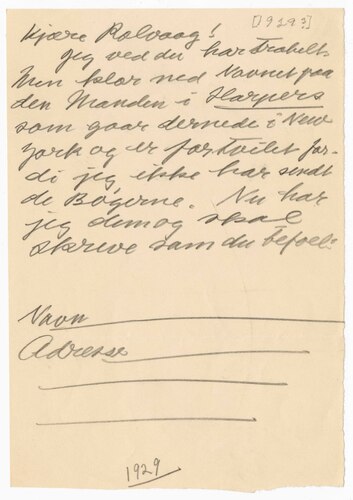 [1929?]
Kjære Rolvaag!
Jeg ved du har Trabelt.
Men klor ned Navnet paa
den Manden i Harpers
som gaar dernede i New
York og er fortvilet for-
di jeg ikke har sendt
de Bøgerne. Nu har
jeg dem og skal
skreve som du befoel:
Navn
Adresse
1929